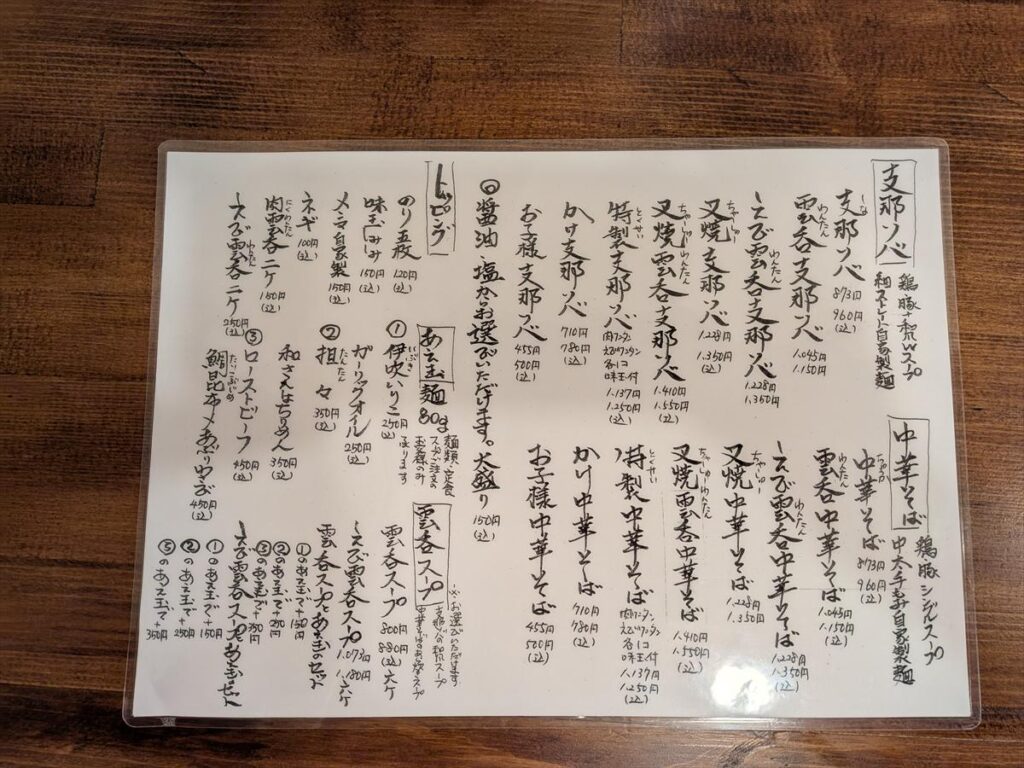 支那ソバ
鶏豚+和風Wスープ
細ストレート自家製麺
支那ソバ 873円 960円(込)
雲呑支那ソバ 1.045円 1.150円
わんたん
えび雲呑支那ソバ 1.228円 1.350円
わんたん
叉焼支那ソバ 1.228円 1.350円(込)
ちゃーしゅー
叉焼雲呑支那ソバ 1.410円 1.550円(込)
ちゃーしゅー わんたん
特製支那ソバ 肉ワンタン えびワンタン 各1コ 味玉付 1.137円 1.250円(込)
とくせい
かけ支那ソバ 710円 780円(込)
お子様支那ソバ 455円 500円(込)
中華そば
鶏豚シングルスープ
中太手もみ自家製麺
中華そば 873円 960円(込)
ちゅうか
雲呑中華そば 1.045円 1.150円(込)
わんたん
えび雲呑中華そば 1.228円 1.350円(込)
わんたん
叉焼中華そば 1.228円 1.350円
ちゃーしゅー
叉焼雲呑中華そば 1.410円 1.550円(込)
ちゃーしゅーわんたん
特製中華そば 肉ワンタン えびワンタン 各1コ 味玉付 1.137円 1.250円(込)
とくせい
かけ中華そば 710円 780円(込)
お子様中華そば 455円 500円(込)
◎醤油、塩からお選びいただけます。大盛り 150円(込)
トッピング
のり五枚 120円(込)
味玉 150円(込)
メンマ自家製 150円(込)
ネギ 100円(込)
肉雲呑二ケ 150円(込)
にくわんたん
えび雲呑二ケ 250円(込)
わんたん
あえ玉麺80g
麺類、定食
スープご注文の
お客様のみ
承ります
① 伊吹いりこ 250円(込)
いぶき
ガーリックオイル 250円(込)
② 担々 350円(込)
たんたん
和さんしょうちりめん 350円(込)
③ ローストビーフ 450円(込)
鯛昆布〆あぶりわさび 450円(込)
たいこぶじめ
雲呑スープ
※お選びいただけます
支那ソバの和風スープ
中華そばのあっさりスープ
雲呑スープ 800円 880円(込) 六ケ
えび雲呑スープ 1.073円 1.180円 六ケ
雲呑スープとあえ玉のセット
①のあえ玉で+150円
②のあえ玉で+250円
③のあえ玉で+350円
えび雲呑スープあえ玉セット
①のあえ玉で+150円
②のあえ玉で+250円
③のあえ玉で+350円